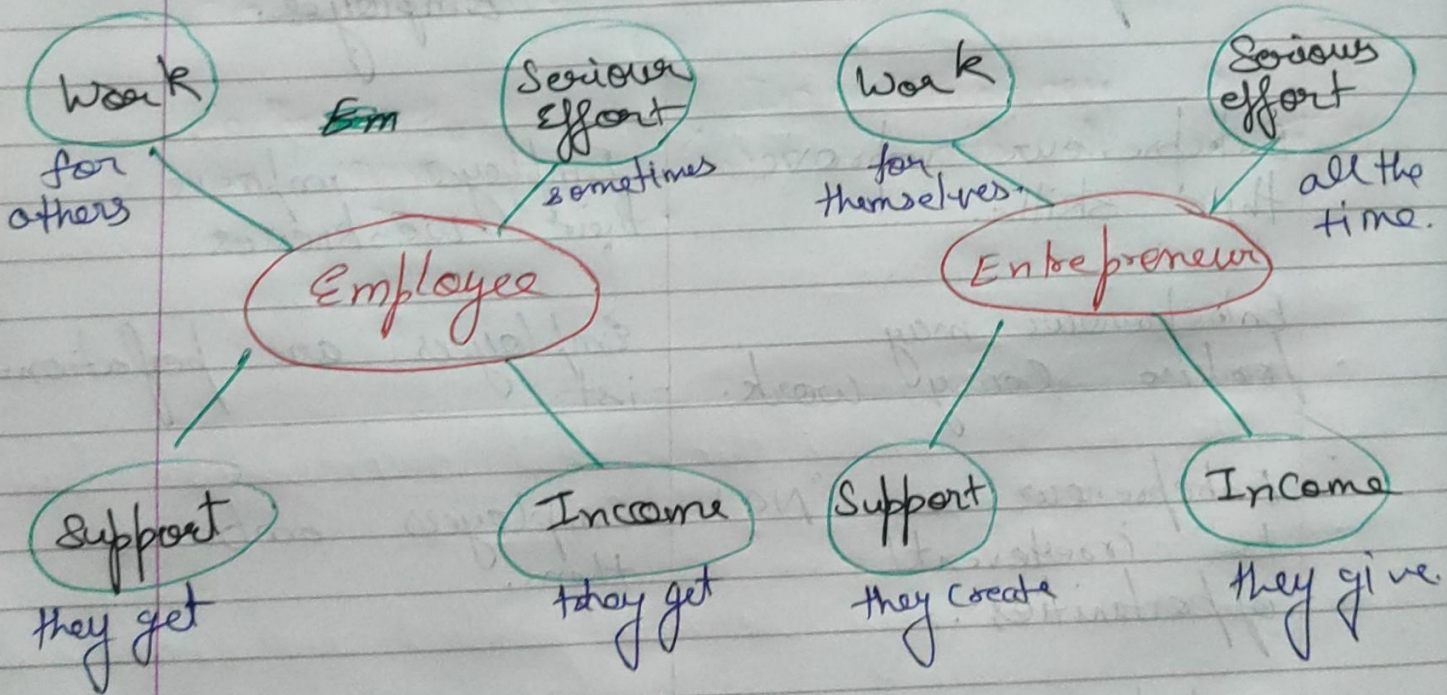 Work
for
others
Em
Serious
Effort
sometimes
Employee
Support
they get
Income
they get
Work
for
themselves.
Serious
effort
all the
time.
Entrepreneur
Support
they create
Income
they give.